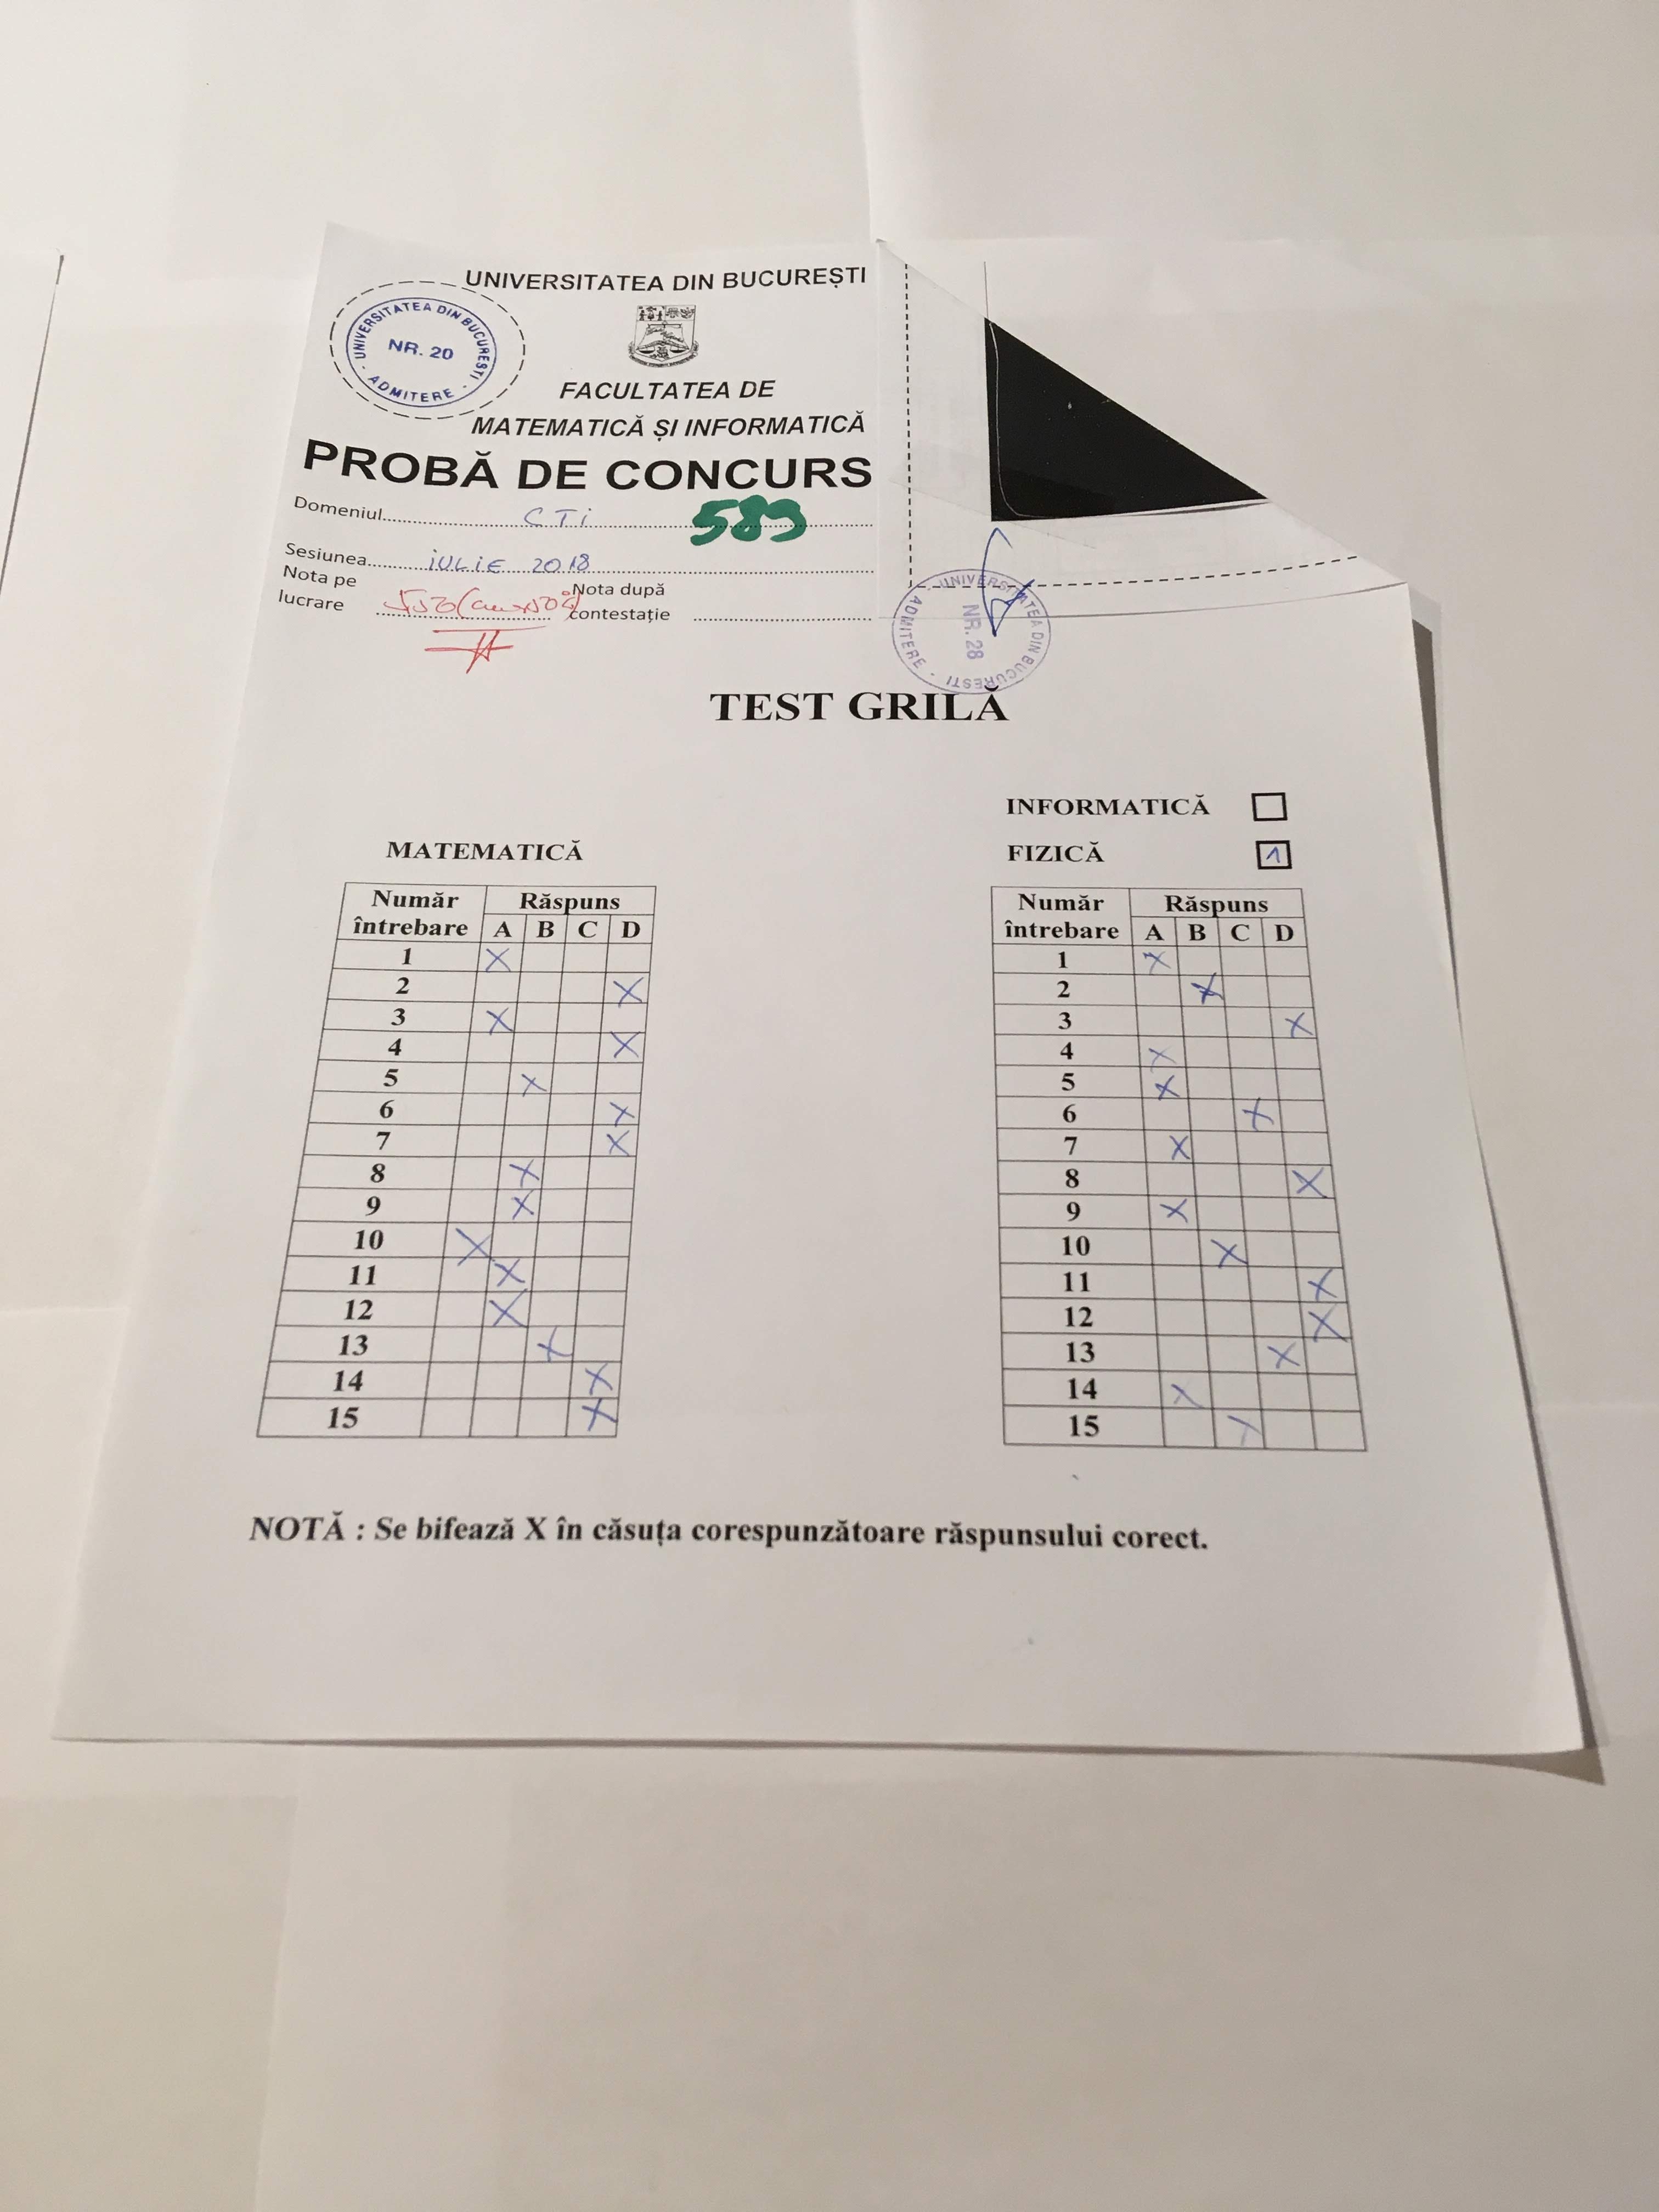 UNIVERSITATEA DIN BUCUREȘTI
UNIVERSITATEA DIN BUCURESTI - ADMITERE -
NR. 20
FACULTATEA DE
MATEMATICĂ ȘI INFORMATICĂ
PROBĂ DE CONCURS
Domeniul CTi 589
Sesiunea iULiE 2018
Nota pe lucrare
Nota după contestație
UNIVERSITATEA DIN BUCURESTI - ADMITERE -
NR. 28
TEST GRILĂ
INFORMATICĂ
FIZICĂ 1
MATEMATICĂ
Număr întrebare Răspuns
A B C D
1 X
2 X
3 X
4 X
5 X
6 X
7 X
8 X
9 X
10 X
11 X
12 X
13 X
14 X
15 X
Număr întrebare Răspuns
A B C D
1 X
2 X
3 X
4 X
5 X
6 X
7 X
8 X
9 X
10 X
11 X
12 X
13 X
14 X
15 X
NOTĂ : Se bifează X în căsuța corespunzătoare răspunsului corect.